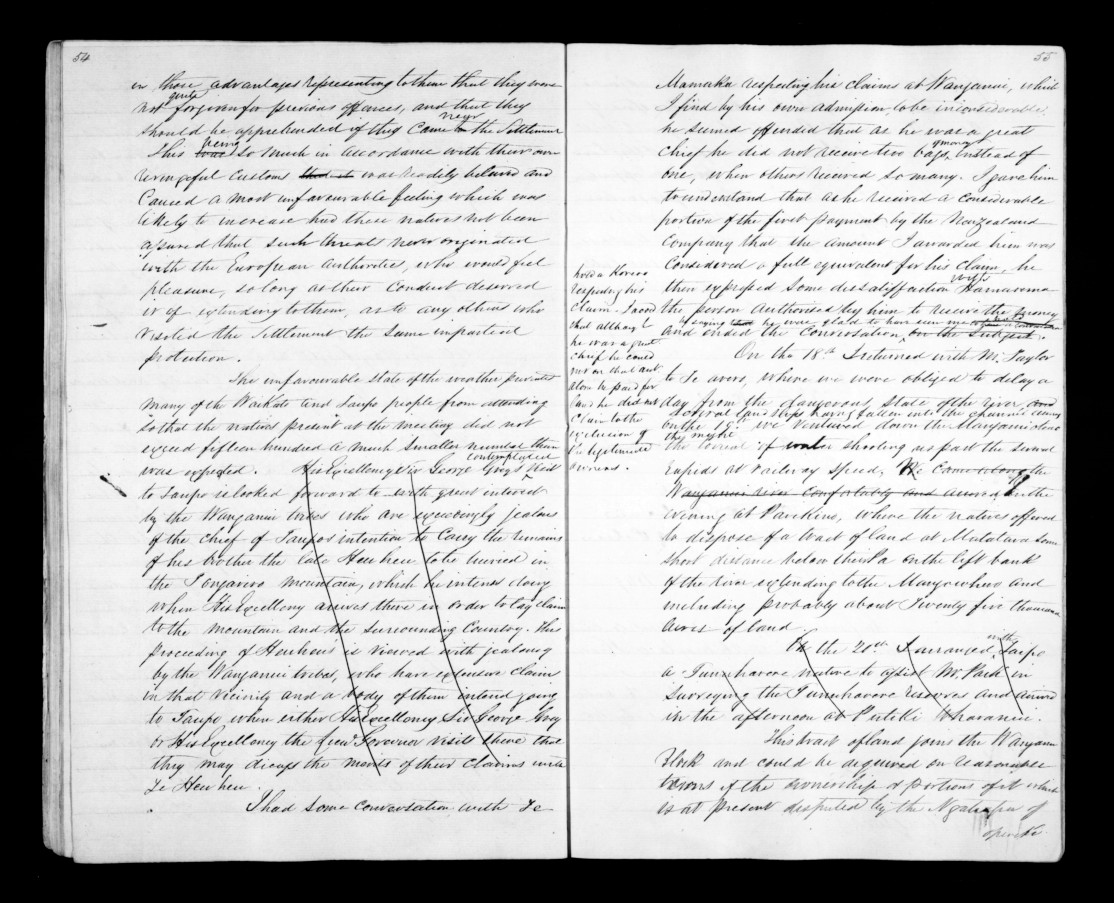 54
in those advantages representing to them that they were
not quite forgiven for previous offences, and that they
should be apprehended if they came near to the Settlement
This was being so much in accordance with their own
revengeful customs that it was readily believed and
Caused a most unfavourable feeling which was
likely to increase had these natives not been
assured that such threats never originated
with the European Authorities, who would feel
pleasure, so long as their conduct deserved
it of extending to them, as to any others who
visited the Settlement the same impartial
protection.
The unfavourable state of the weather prevented
many of the Waikato and Taupo people from attending
so that the natives present at the meeting did not
exceed fifteen hundred a much smaller number than
was expected. His Excellency Sir George Grey's contemplated visit
to Taupo is looked forward to with great interest
by the Wanganui tribes who are exceedingly jealous
of the chief of Taupos intention to carry the remains
of his brother the late Heuheu to be buried in
the Tongariro mountain, which he intends doing
when His Excellency arrives there in order to lay claim
to the mountain and the surrounding Country. This
proceeding of Heuheus is viewed with jealousy
by the Wanganui tribes, who have extensive claims
in that vicinity and a body of them intend going
to Taupo when either His Excellency Sir George Grey
or His Excellency the Lieut Governor visits there that
they may discuss the merits of their claims with
Te Heuheu.
I had some conversation with Te
55
Mamaku respecting his claims at Wanganui, which
I find by his own admission to be inconsiderable.
he seemed offended that as he was a great
chief he did not receive two bags of money instead of
one, when others received so many. I gave him
to understand that as he received a considerable
portion of the first payment by the New Zealand
Company that the amount I awarded him was
Considered a full equivalent for his claim, he
then expressed some dissatisfaction with Hamarama
the person authorised by him to receive the money
by saying that he was glad to have seen me
and ended the Conversation on the subject.
had a Korero
respecting his
claim. I said
that although
he was a great
chief he could
not on that acct
alone be paid for
land he did not
claim to the
exclusion of
the legitimate
owners.
On the 18th I returned with Mr Taylor
to Te where we were obliged to delay a
day from the dangerous state of the river and
several land slips having fallen into the channel
on the 19th we ventured down the Manganui
the torrent of shooting us past the several
rapids at railway speed. We came along the
Wanganui river comfortably and arrived in the
evening at Parikino, where the natives offered
to dispose of a tract of land at Matatara some
short distance below their Pa on the left bank
of the river extending to the Mangowhero and
including probably about Twenty five thousand
acres of land.
On the 20th I arranged with Taipo
a Tunuhaere native to assist Mr Park in
surveying the Tunuhaere reserves and arrived
in the afternoon at Putiki Wharanui.
This tract of land joins the Wanganui
Block and could be acquired on reasonable
terms if the ownership of portions of it which
is at present disputed by the Ngatiapa of